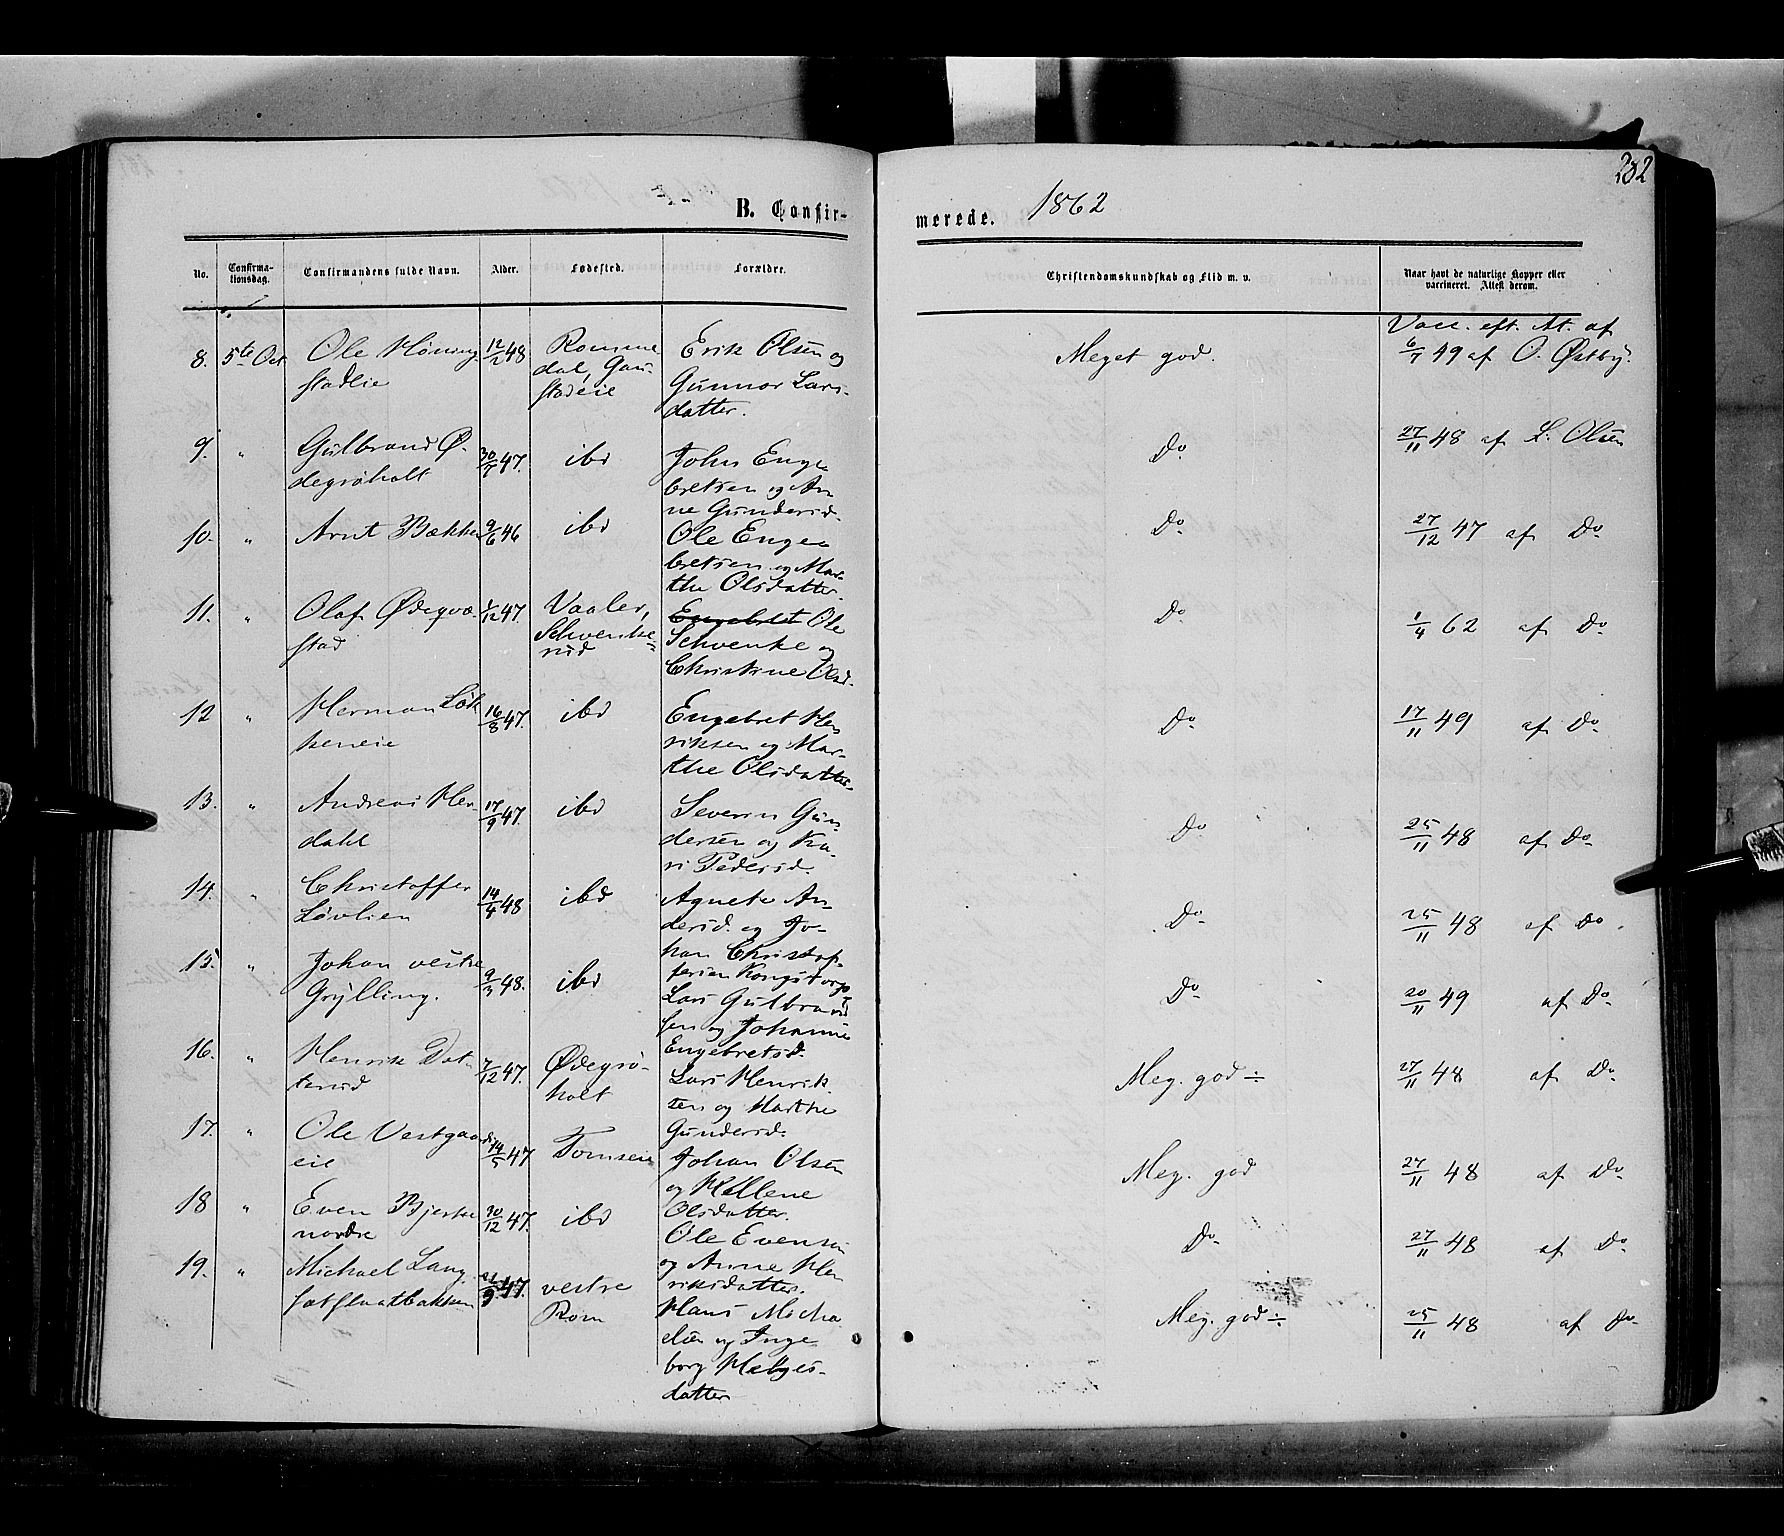 232
B. Confir-
merede. 1862
No.
Confirma-
tionsdag.
Confirmandens fulde Navn.
Alder.
Fødested.
Forældre.
Christendomskundskab og Flid m. v.
Naar havt de naturlige Kopper eller
vaccineret. Attest derom.
8. 5te Oct
Ole Høning
stadlie
12/2 48
Romme
dal, Gau-
stadeie
Erik Olsen og
Gunnor Lars-
datter.
Meget god.
Vacc. eft. At. af
6/7 49 af O. Østby.
9. "
Gulbrand Ø-
degrøholt
30/7 47.
ibd
John Enge-
bretsen og An
ne Gundersd.
Do
27/11 48 af L. Olsen
10. "
Arnt Bækken
9/6 46
ibd
Ole Enge-
bretsen og Mar-
the Olsdatter.
Do
27/12 47 af Do
11. "
Olaf Ødeqvæ-
stad
1/12 47.
Vaaler,
Schvenke-
rud
Engebret Ole
Schvenke og
Christine Olsd.
Do
1/4 62 af Do
12 "
Herman Løk
keneie
16/8 47.
ibd
Engebret Hen
riksen og Mar-
the Olsdatter.
Do
17/11 49 af Do
13. "
Andreas Her-
dahl
17/9 47.
ibd
Severin Gun-
dersen og Ka-
ri Pedersd.
Do
25/11 48 af Do
14. "
Christoffer
Løvlien
14/4 48
ibd
Agnete An-
dersd. og Jo-
han Christof-
fersen Kongstorp
Do
25/11 48 af Do
15. "
Johan vestre
Grylling.
9/3 48.
ibd
Lars Gulbrand
sen og Johanne
Engebretsd.
Do
20/11 49 af Do
16. "
Henrik Det-
terud
7/12 47.
Ødegrø-
holt
Lars Henrik
sen og Marthe
Gundersd.
Meg. god ÷
27/11 48 af Do
17. "
Ole Vestgaards
eie
14/5 47
Tomseie
Johan Olsen
og Hellene
Olsdatter.
Meg. god
27/11 48 af Do
18 "
Even Bjerke
nordre
30/12 47.
ibd
Ole Evensen
og Anne Hen
riksdatter.
Do
27/11 48 af Do
19. "
Michael Lang
47.
vestre
Rom
Hans Micha
elsen og Inge
borg Helges-
datter
Meg. god ÷
25/11 48 af Do